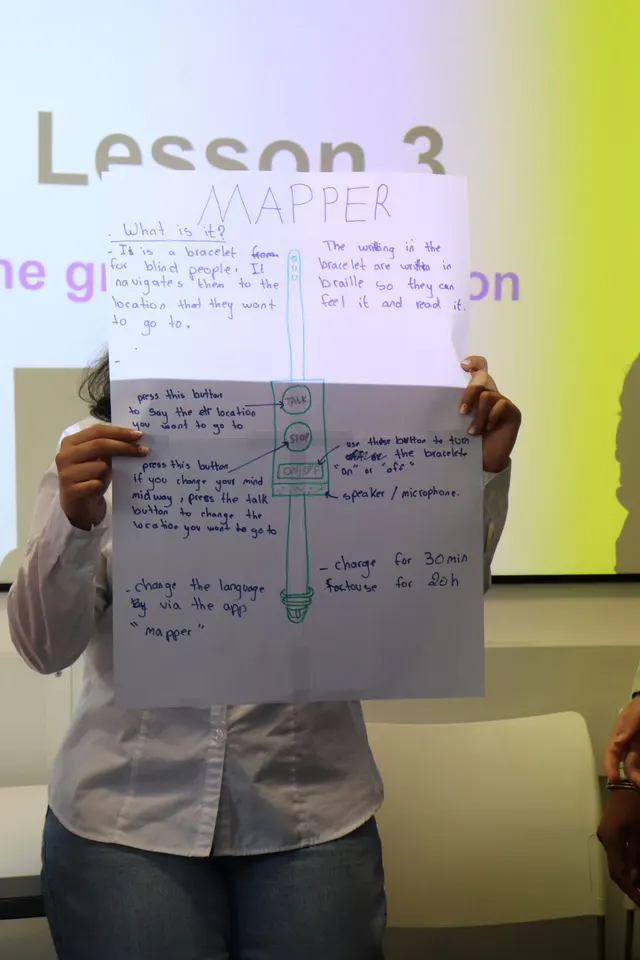 Lesson 3
ne g
on
MAPPER
. What is it?
- It is a bracelet
for blind people. It
navigates them to the
location that they want
to go to.
-
The writing in the
bracelet are written in
braille so they can
feel it and read it.
press this button
to say the location
you want to go to
TALK
STOP
ON/OFF
press this button
if you change your mind
midway, press the talk
button to change the
location you want to go to
use these button to turn
the bracelet
"on" or "off"
speaker / microphone.
- change the language
via the app
"mapper"
- charge for 30min
use for 20h